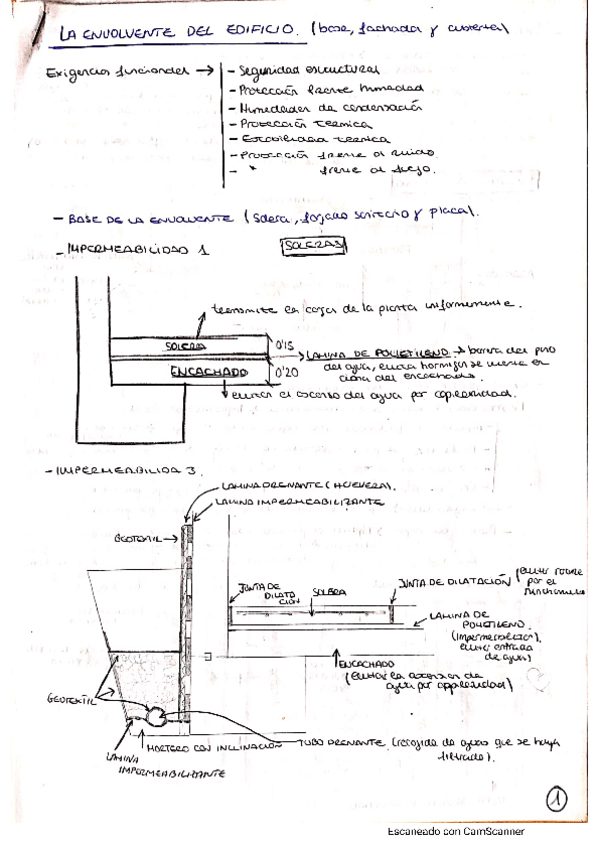 LA ENVOLVENTE DEL EDIFICIO. (base, fachada y cubierta)
Exigencias funcionales → - Seguridad estructural
- Protección frente humedad
- Humedades de condensación
- Protección térmica
- Estabilidad térmica
- Protección frente al ruido.
- " frente al fuego.
- BASE DE LA ENVOLVENTE (Solera, forjado sanitario y placa).
- IMPERMEABILIDAD 1
SOLERAS
transmite la carga de la planta uniformemente.
SOLERA
0'15
LAMINA DE POLIETILENO → barrera del paso
del agua, evita hormigón se
del encachado.
ENCACHADO
0'20
evitar el ascenso del agua por capilaridad.
- IMPERMEABILIDA 3.
LAMINA DRENANTE (HUEVERA).
LAMINA IMPERMEABILIZANTE
GEOTEXTIL
JUNTA DE DILATACIÓN
SOLERA
JUNTA DE DILATACIÓN (evitar
por el
LAMINA DE
POLIETILENO.
(impermeabilización),
evitar entrada
de agua)
ENCACHADO
(Evitar la ascension de
agua por capilaridad)
GEOTEXTIL
MORTERO CON INCLINACIÓN
TUBO DRENANTE (recogida de aguas que se haya
filtrado).
LAMINA
IMPERMEABILIZANTE
1
Escaneado con CamScanner